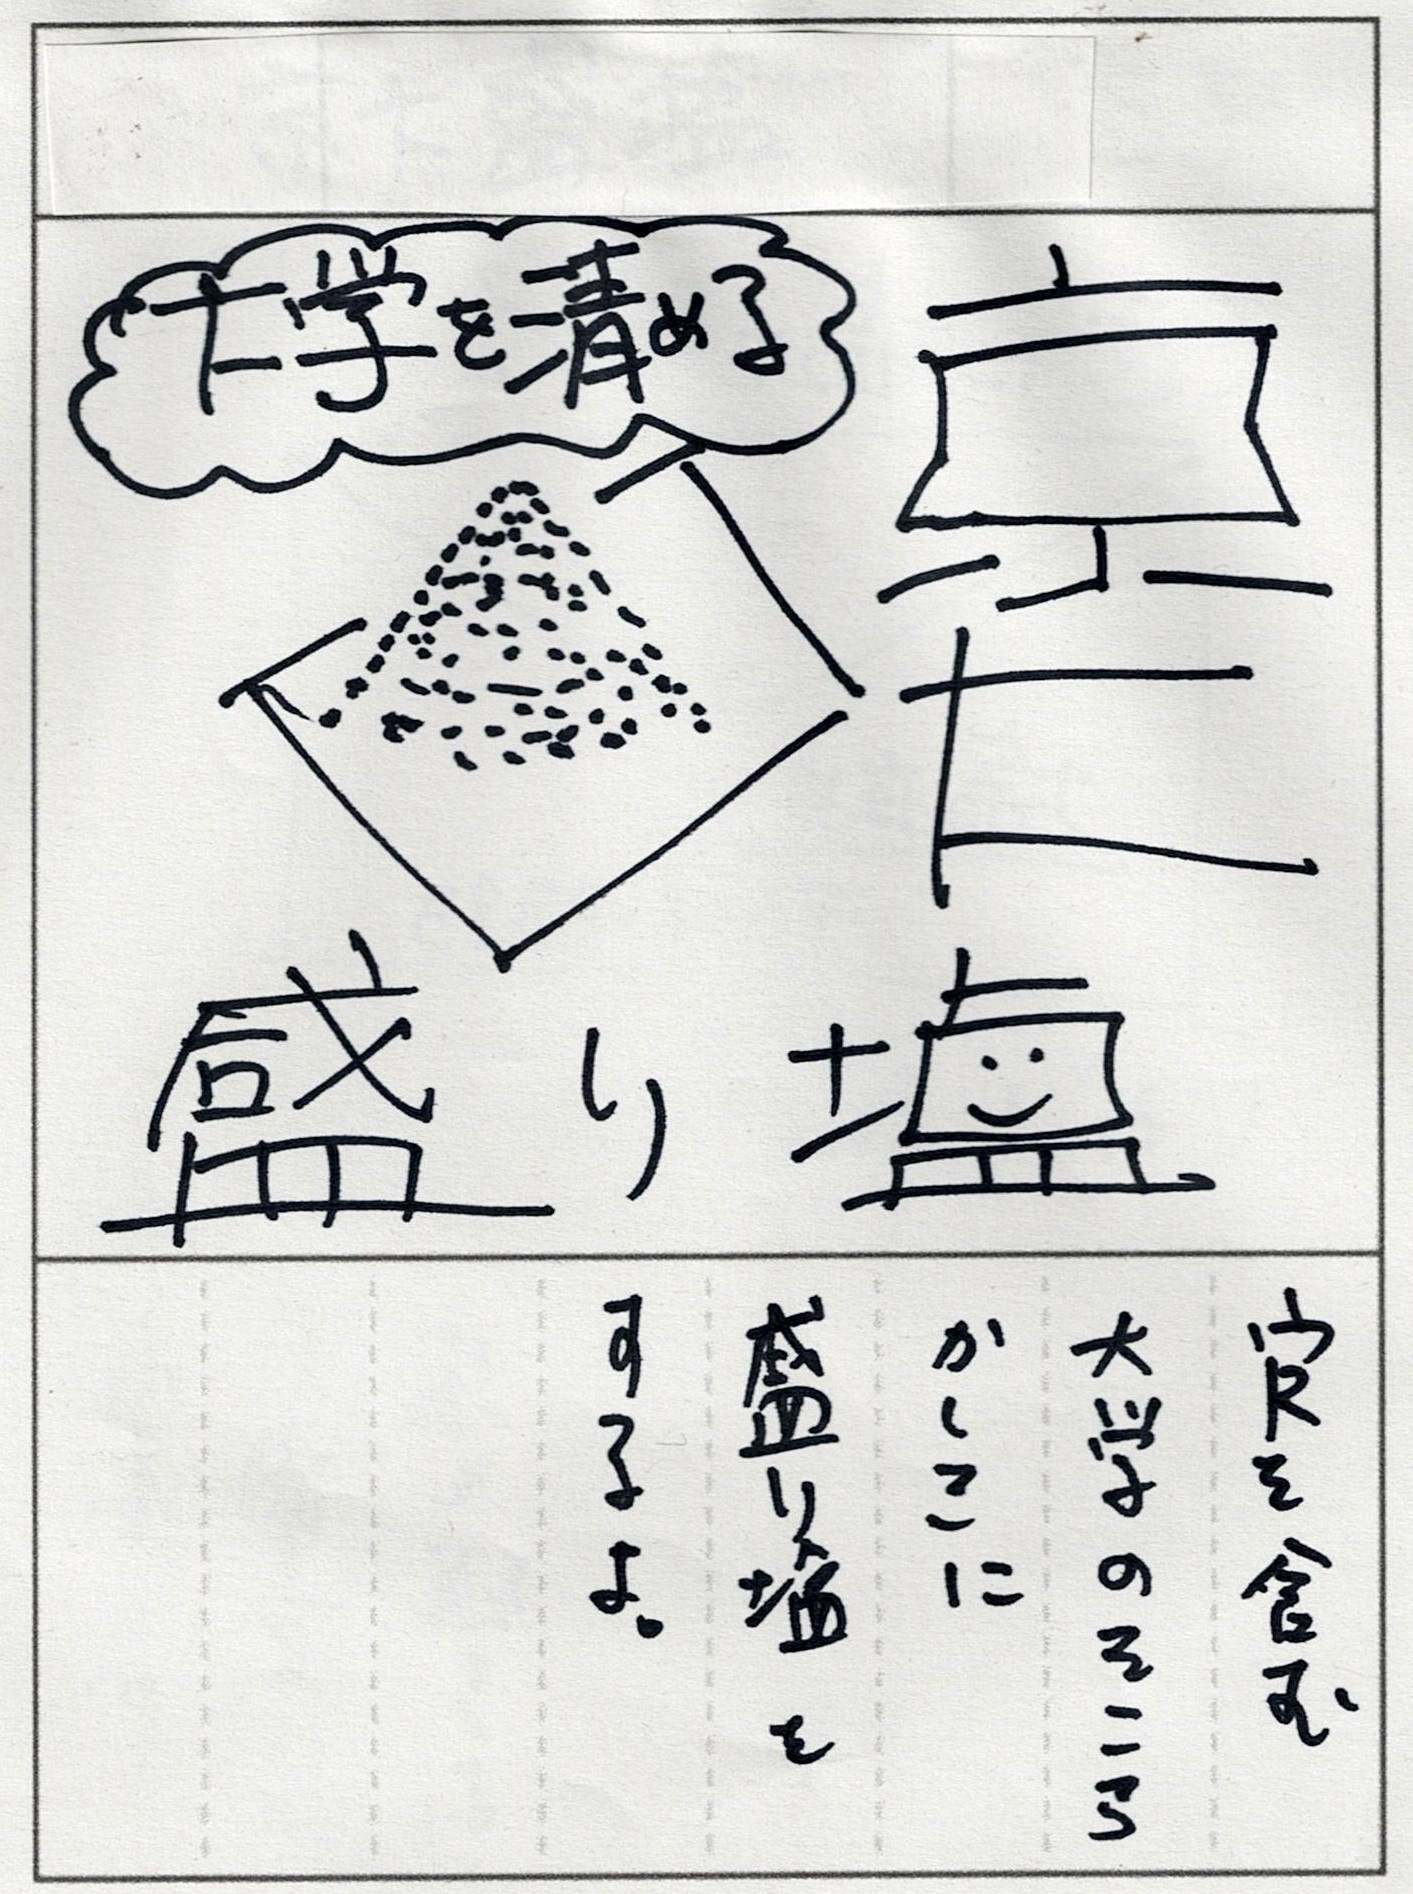 学を清める
京
盛り塩
を含む
大学のそこら
かしこに
盛り塩を
するよ。